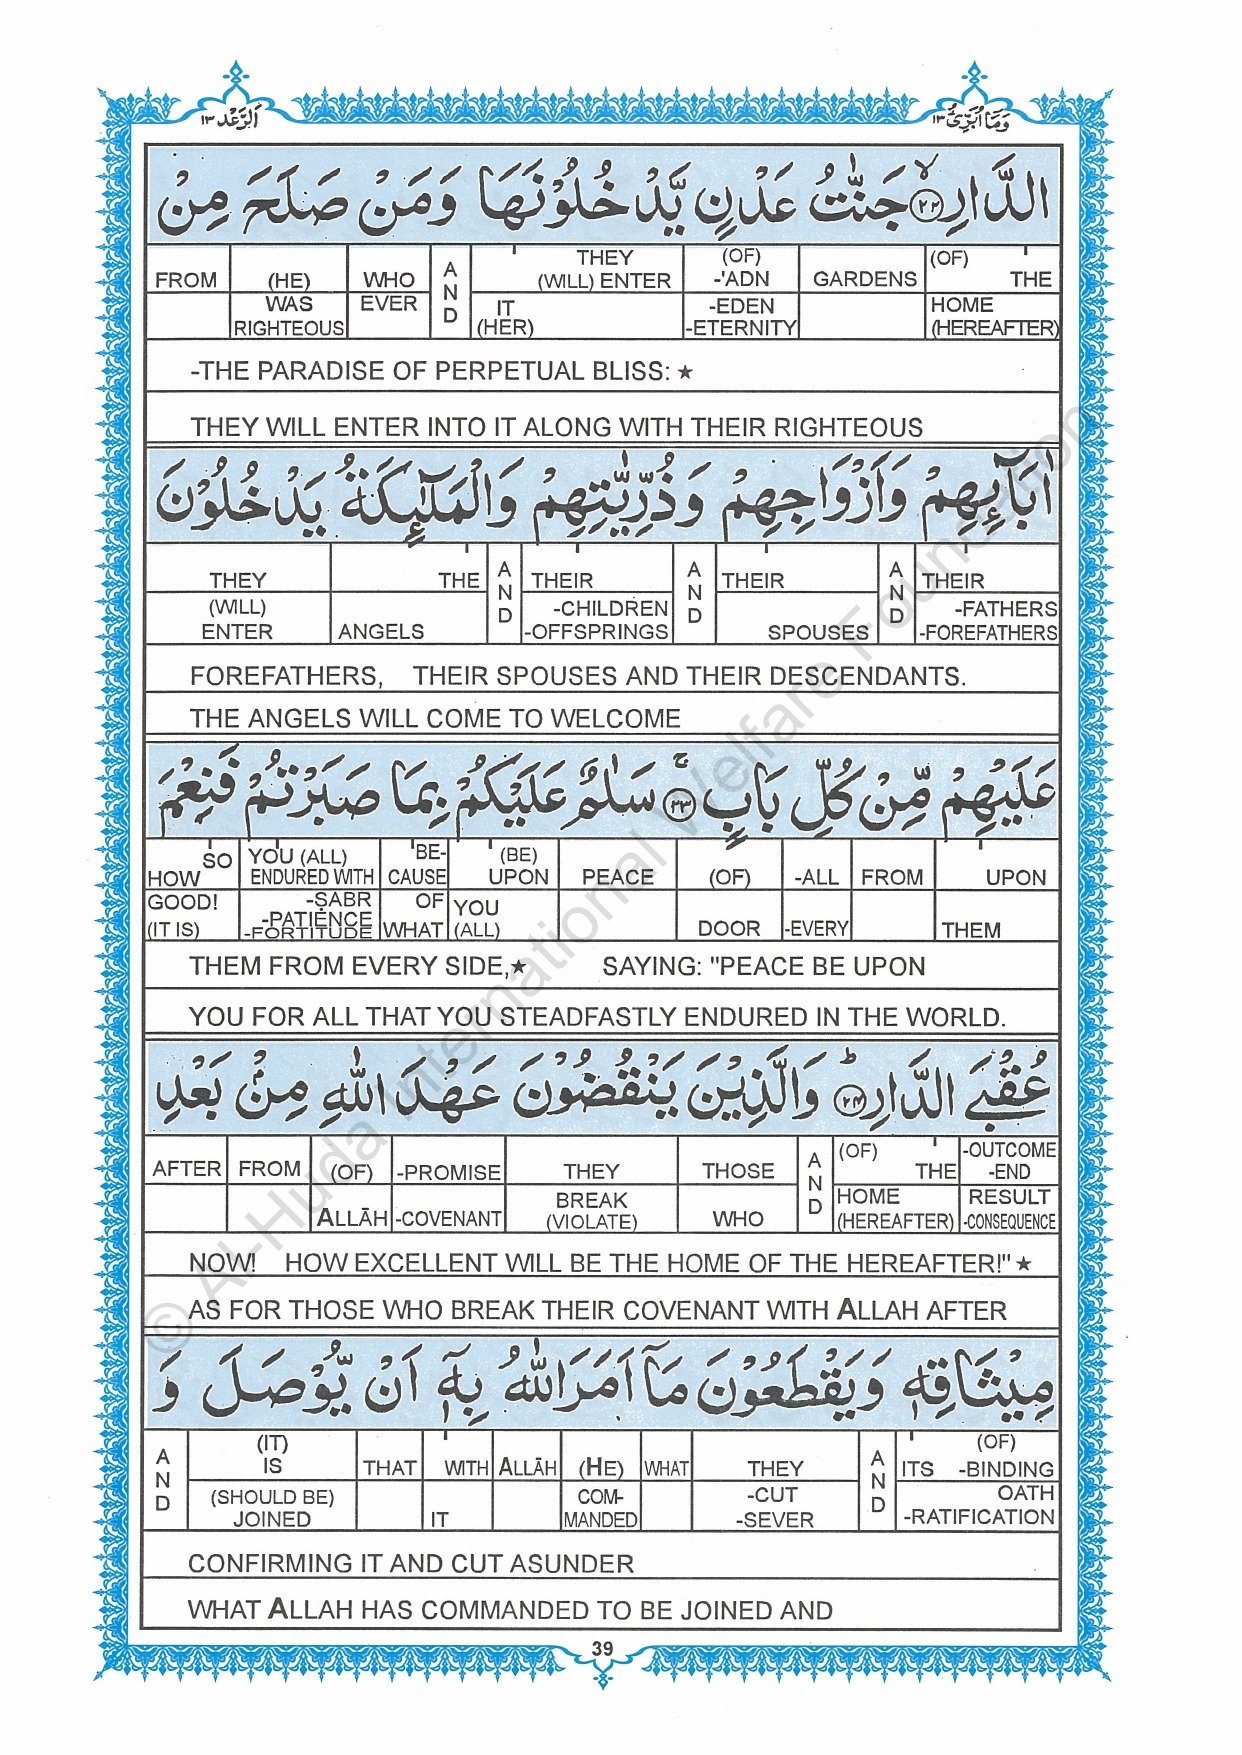 اَلرَّعْد ١٣
وَمَا اُبَرِّئُ ١٣
الدَّارِ ﴿٢٢﴾ۙ جَنّٰتُ عَدْنٍ يَّدْخُلُوْنَهَا وَمَنْ صَلَحَ مِنْ
FROM (HE) WHO AND THEY (OF) GARDENS (OF) THE
(WILL) ENTER -'ADN
WAS EVER IT -EDEN HOME
RIGHTEOUS (HER) -ETERNITY (HEREAFTER)
-THE PARADISE OF PERPETUAL BLISS: ★
THEY WILL ENTER INTO IT ALONG WITH THEIR RIGHTEOUS
اٰبَآئِهِمْ وَاَزْوَاجِهِمْ وَذُرِّيّٰتِهِمْ وَالْمَلٰٓئِكَةُ يَدْخُلُوْنَ
THEY THE AND THEIR AND THEIR AND THEIR
(WILL) -CHILDREN -FATHERS
ENTER ANGELS -OFFSPRINGS SPOUSES -FOREFATHERS
FOREFATHERS, THEIR SPOUSES AND THEIR DESCENDANTS.
THE ANGELS WILL COME TO WELCOME
عَلَيْهِمْ مِّنْ كُلِّ بَابٍ ﴿٢٣﴾ۚ سَلٰمٌ عَلَيْكُمْ بِمَا صَبَرْتُمْ فَنِعْمَ
SO YOU (ALL) BE- (BE)
HOW ENDURED WITH CAUSE UPON PEACE (OF) -ALL FROM UPON
GOOD! -ṢABR OF YOU
-PATIENCE
(IT IS) -FORTITUDE WHAT (ALL) DOOR -EVERY THEM
THEM FROM EVERY SIDE,★ SAYING: "PEACE BE UPON
YOU FOR ALL THAT YOU STEADFASTLY ENDURED IN THE WORLD.
عُقْبَى الدَّارِ ﴿٢٤﴾ؕ وَالَّذِيْنَ يَنْقُضُوْنَ عَهْدَ اللّٰهِ مِنْۢ بَعْدِ
AND (OF) -OUTCOME
AFTER FROM (OF) -PROMISE THEY THOSE THE -END
BREAK HOME RESULT
ALLĀH -COVENANT (VIOLATE) WHO (HEREAFTER) -CONSEQUENCE
NOW! HOW EXCELLENT WILL BE THE HOME OF THE HEREAFTER!" ★
AS FOR THOSE WHO BREAK THEIR COVENANT WITH ALLAH AFTER
مِيْثَاقِهٖ وَيَقْطَعُوْنَ مَآ اَمَرَ اللّٰهُ بِهٖٓ اَنْ يُّوْصَلَ وَ
AND (IT) AND (OF)
IS THAT WITH ALLĀH (HE) WHAT THEY ITS -BINDING
(SHOULD BE) COM- -CUT OATH
JOINED IT MANDED -SEVER -RATIFICATION
CONFIRMING IT AND CUT ASUNDER
WHAT ALLAH HAS COMMANDED TO BE JOINED AND
39
© Al-Huda International Welfare Foundation